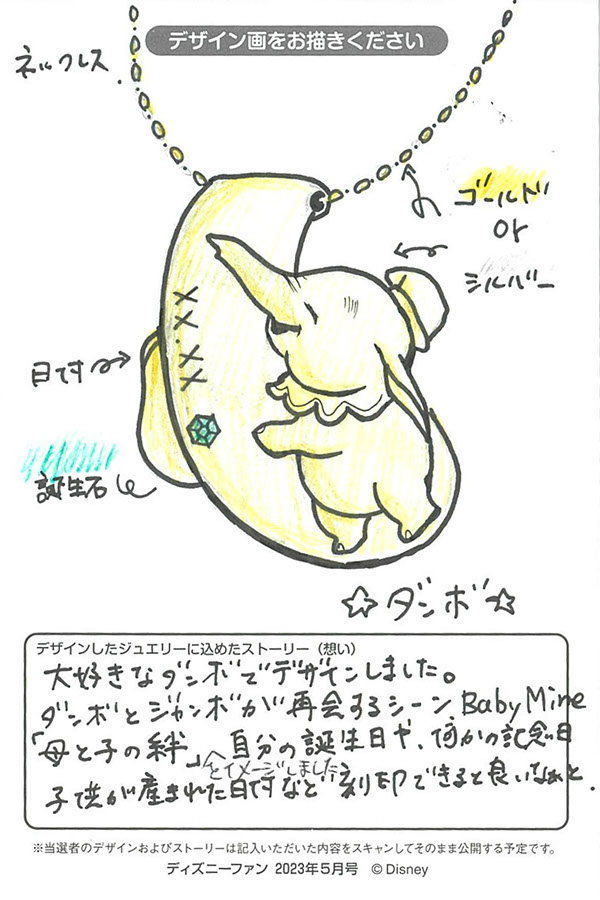 デザイン画をお描きください
ネックレス
ゴールド
or
シルバー
日です
XX.XX
誕生石
☆ダンボ☆
デザインしたジュエリーに込めたストーリー（想い）
大好きなダンボでデザインしました。
ダンボとジャンボが再会するシーン BabyMine
「母と子の絆」をイメージしました 自分の誕生日や、何かの記念日
子供が産まれた日ですなど刻印できると良いなぁと.
※当選者のデザインおよびストーリーは記入いただいた内容をスキャンしてそのまま公開する予定です。
ディズニーファン 2023年5月号 ©Disney